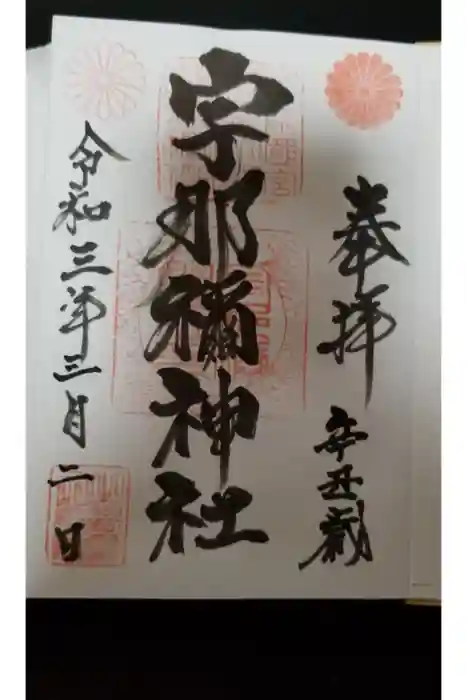 奉拝
辛丑歳
宇那禰神社
令和三年三月二日